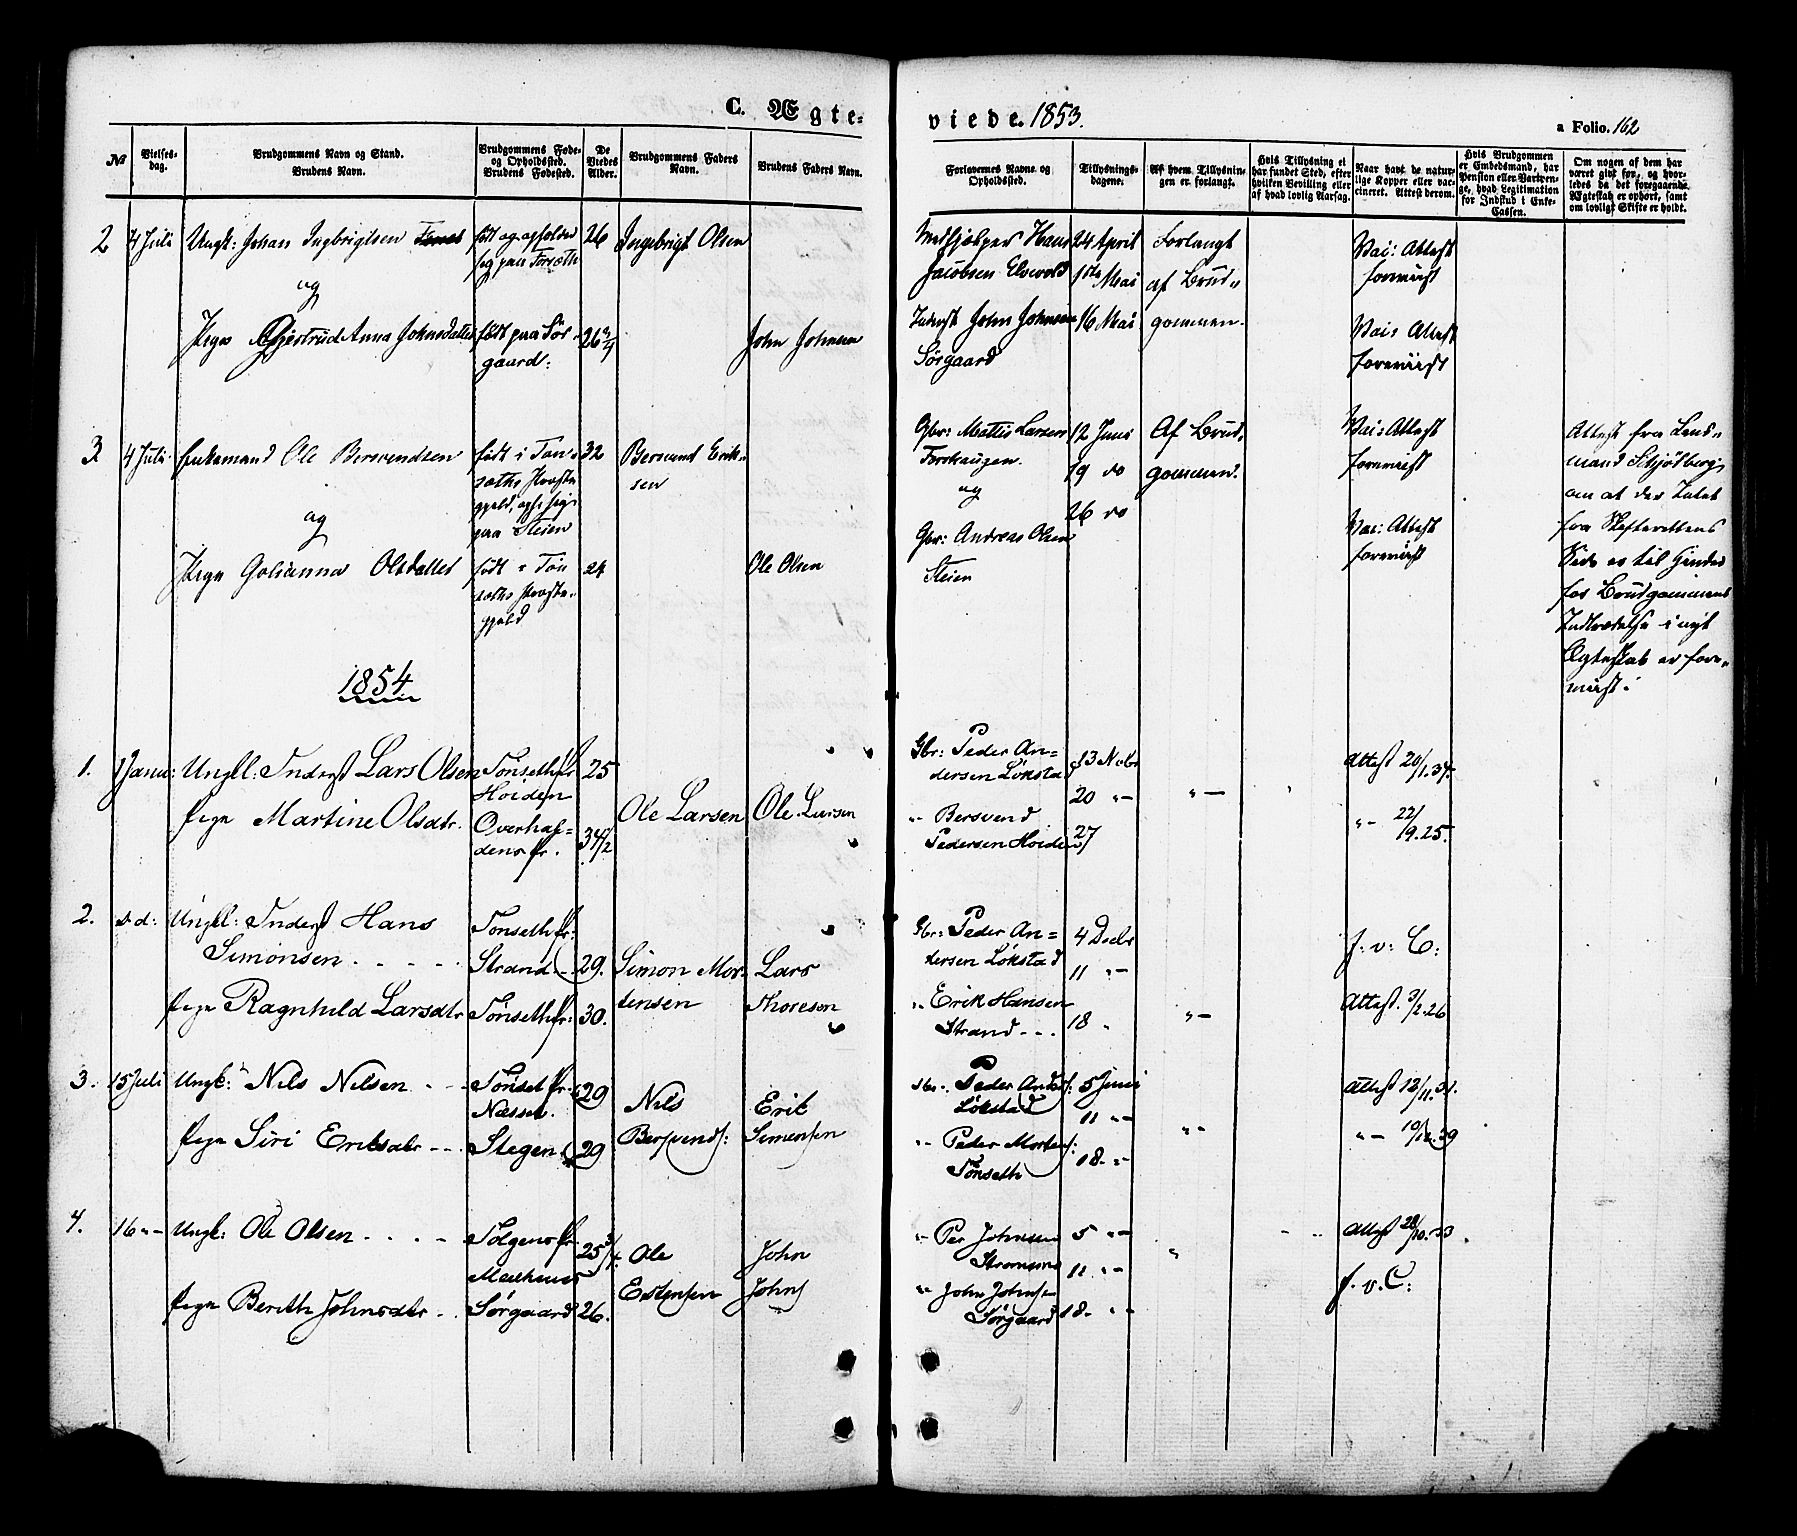 C. Ægte-
viede. 1853.
a Folio. 162
No
Vielses-
dag.
Brudgommens Navn og Stand.
Brudens Navn.
Brudgommens Føde-
og Opholdssted.
Brudens Fødested.
De
Viedes
Alder.
Brudgommens Faders
Navn.
Brudens Faders Navn.
Forlovernes Navne og
Opholdssted.
Tillysnings-
dagene.
Af hvem Tillysnin-
gen er forlangt.
Hvis Tillysning ei
har fundet Sted, efter
hvilken Bevilling eller
af hvad lovlig Aarsag.
Naar havt de natur-
lige Kopper eller vac-
cineret. Attest derom.
Hvis Brudgommen
er Embedsmand, har
Pension eller Vartpen-
ge, hvad Legitimation
for Indskud i Enke-
Cassen.
Om nogen af dem har
været gift før, og hvor-
ledes da det foregaaende
Ægteskab er ophørt, samt
om lovligt Skifte er holdt.
2
4 Juli
Ungk: Johan Ingbrigtsen
og
Pige Gjertrud Anna Johnsdatter
født og opholder
sig paa Forsæth
født paa Sør-
gaard:
26
26 3/4
Ingebrigt Olsen
John Johnsen
Hans
Jacobsen Elvevold
Inderst John Johnsen
Sørgaard
24 April
1ste Mai
16 Mai
Forlangt
af Brud-
gommen.
Vac: Attest
forevist
Vac: Attest
forevist
3
4 Juli
Enkemand Ole Bersvendsen
og
Pige Golianna Olsdatter
født i Tøn-
sæths Præste-
gjeld, oph: sig
paa Steien
født i Tøn
sæths Præste-
gjeld
32
24
Bersvend Erik-
sen
Ole Olsen
Gbr: Mattis Larsen
Forrhaugen.
og
Gbr: Andreas Olsen
Steien
12 Juni
19 do
26 do
Af Brud-
gommen.
Vac: Attest
forevist
Vac: Attest
forevist
Attest fra Lens-
mand Schjødberg
om at der Intet
fra Skifterettens
Side er til Hinder
for Brudgommens
Indtrædelse i nyt
Ægteskab er fore-
vist.
1854
1.
1 Janu:
Ungk: Inderst Lars Olsen
Pige Martine Olsdtr.
Tønseth fr
Hoiden
Overhal-
dens fr.
25
34 1/2
Ole Larsen
Ole Larsen
Gbr: Peder An-
dersen Løkstad
"- Bersvend
Pedersen Hoiden
13 Novbr
20 "-
27
"-
Attest 20/1.37.
"- 22/19.25.
2.
D. d:
Ungk: Inderst Hans
Simonsen
Pige Ragnhild Larsdtr
Tonseth fr:
Strand
Tønseth fr:
29.
30.
Simon Mor-
tensen
Lars
Thoreson
Gbr: Peder An-
dersen Løkstad
" Erik Hansen
Strand
4 Decbr
11 "-
18 "
"-
f. v. C:
Attest. 3/2.26
3.
15 Juli
Ungk: Nils Nilsen
Pige Siri Eriksdtr
Tønset fr:
Næsset.
Stegen
29
29
Nils
Bersvends:
Erik
Simensen
Gbr. Peder Anders:
Løkstad
"- Peder Mortens:
Tönseth
5 Juni
11 "-
18. "-
" "
Attest 13/11.31.
"- 10/12.29
4.
16 "-
Ungk: Ole Olsen
Pige Berith Johnsdtr
Tolgens fr.
Sørgaard
25 3/4
26.
Ole
Estensen
John
Johns
"- Per Johnsen
" John Johns
Sörgaard
5 "-
11 "-
18. "-
"
Attest 28/10.33.
f. v. C: